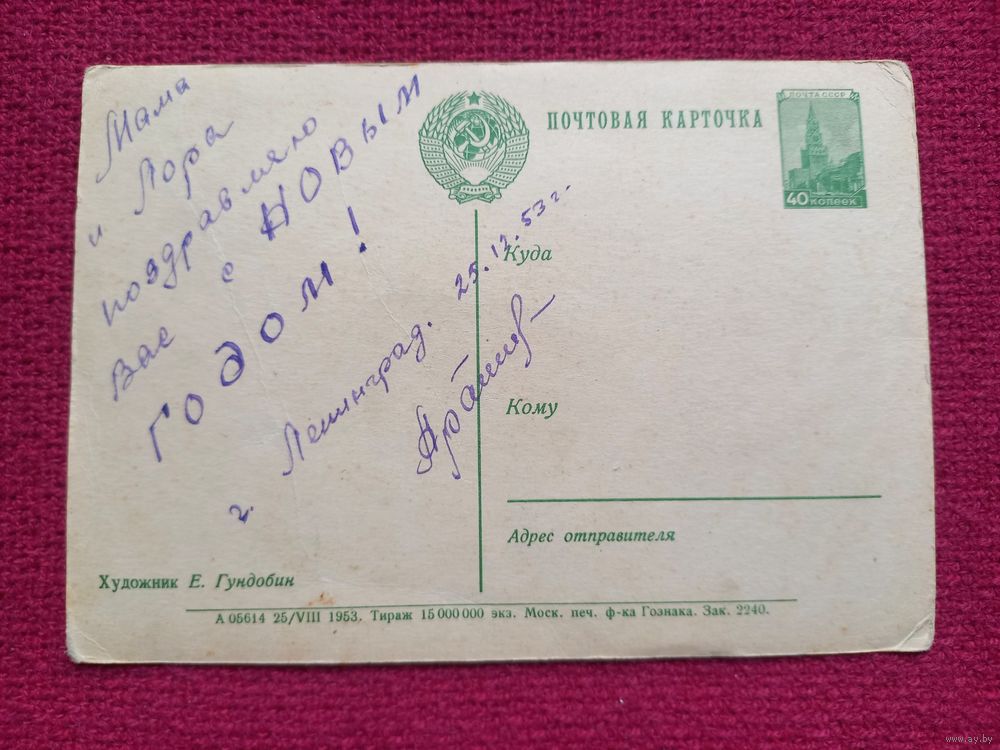 Мама
и Лора
поздравляю
Вас с НОВЫМ
ГОДОМ!
г. Ленинград. 25.12.53 г.
ПОЧТОВАЯ КАРТОЧКА
ПОЧТА СССР
40 КОПЕЕК
Куда
Кому
Адрес отправителя
Художник Е. Гундобин
А 05614 25/VIII 1953. Тираж 15 000 000 экз. Моск. печ. ф-ка Гознака. Зак. 2240.
www.ay.by